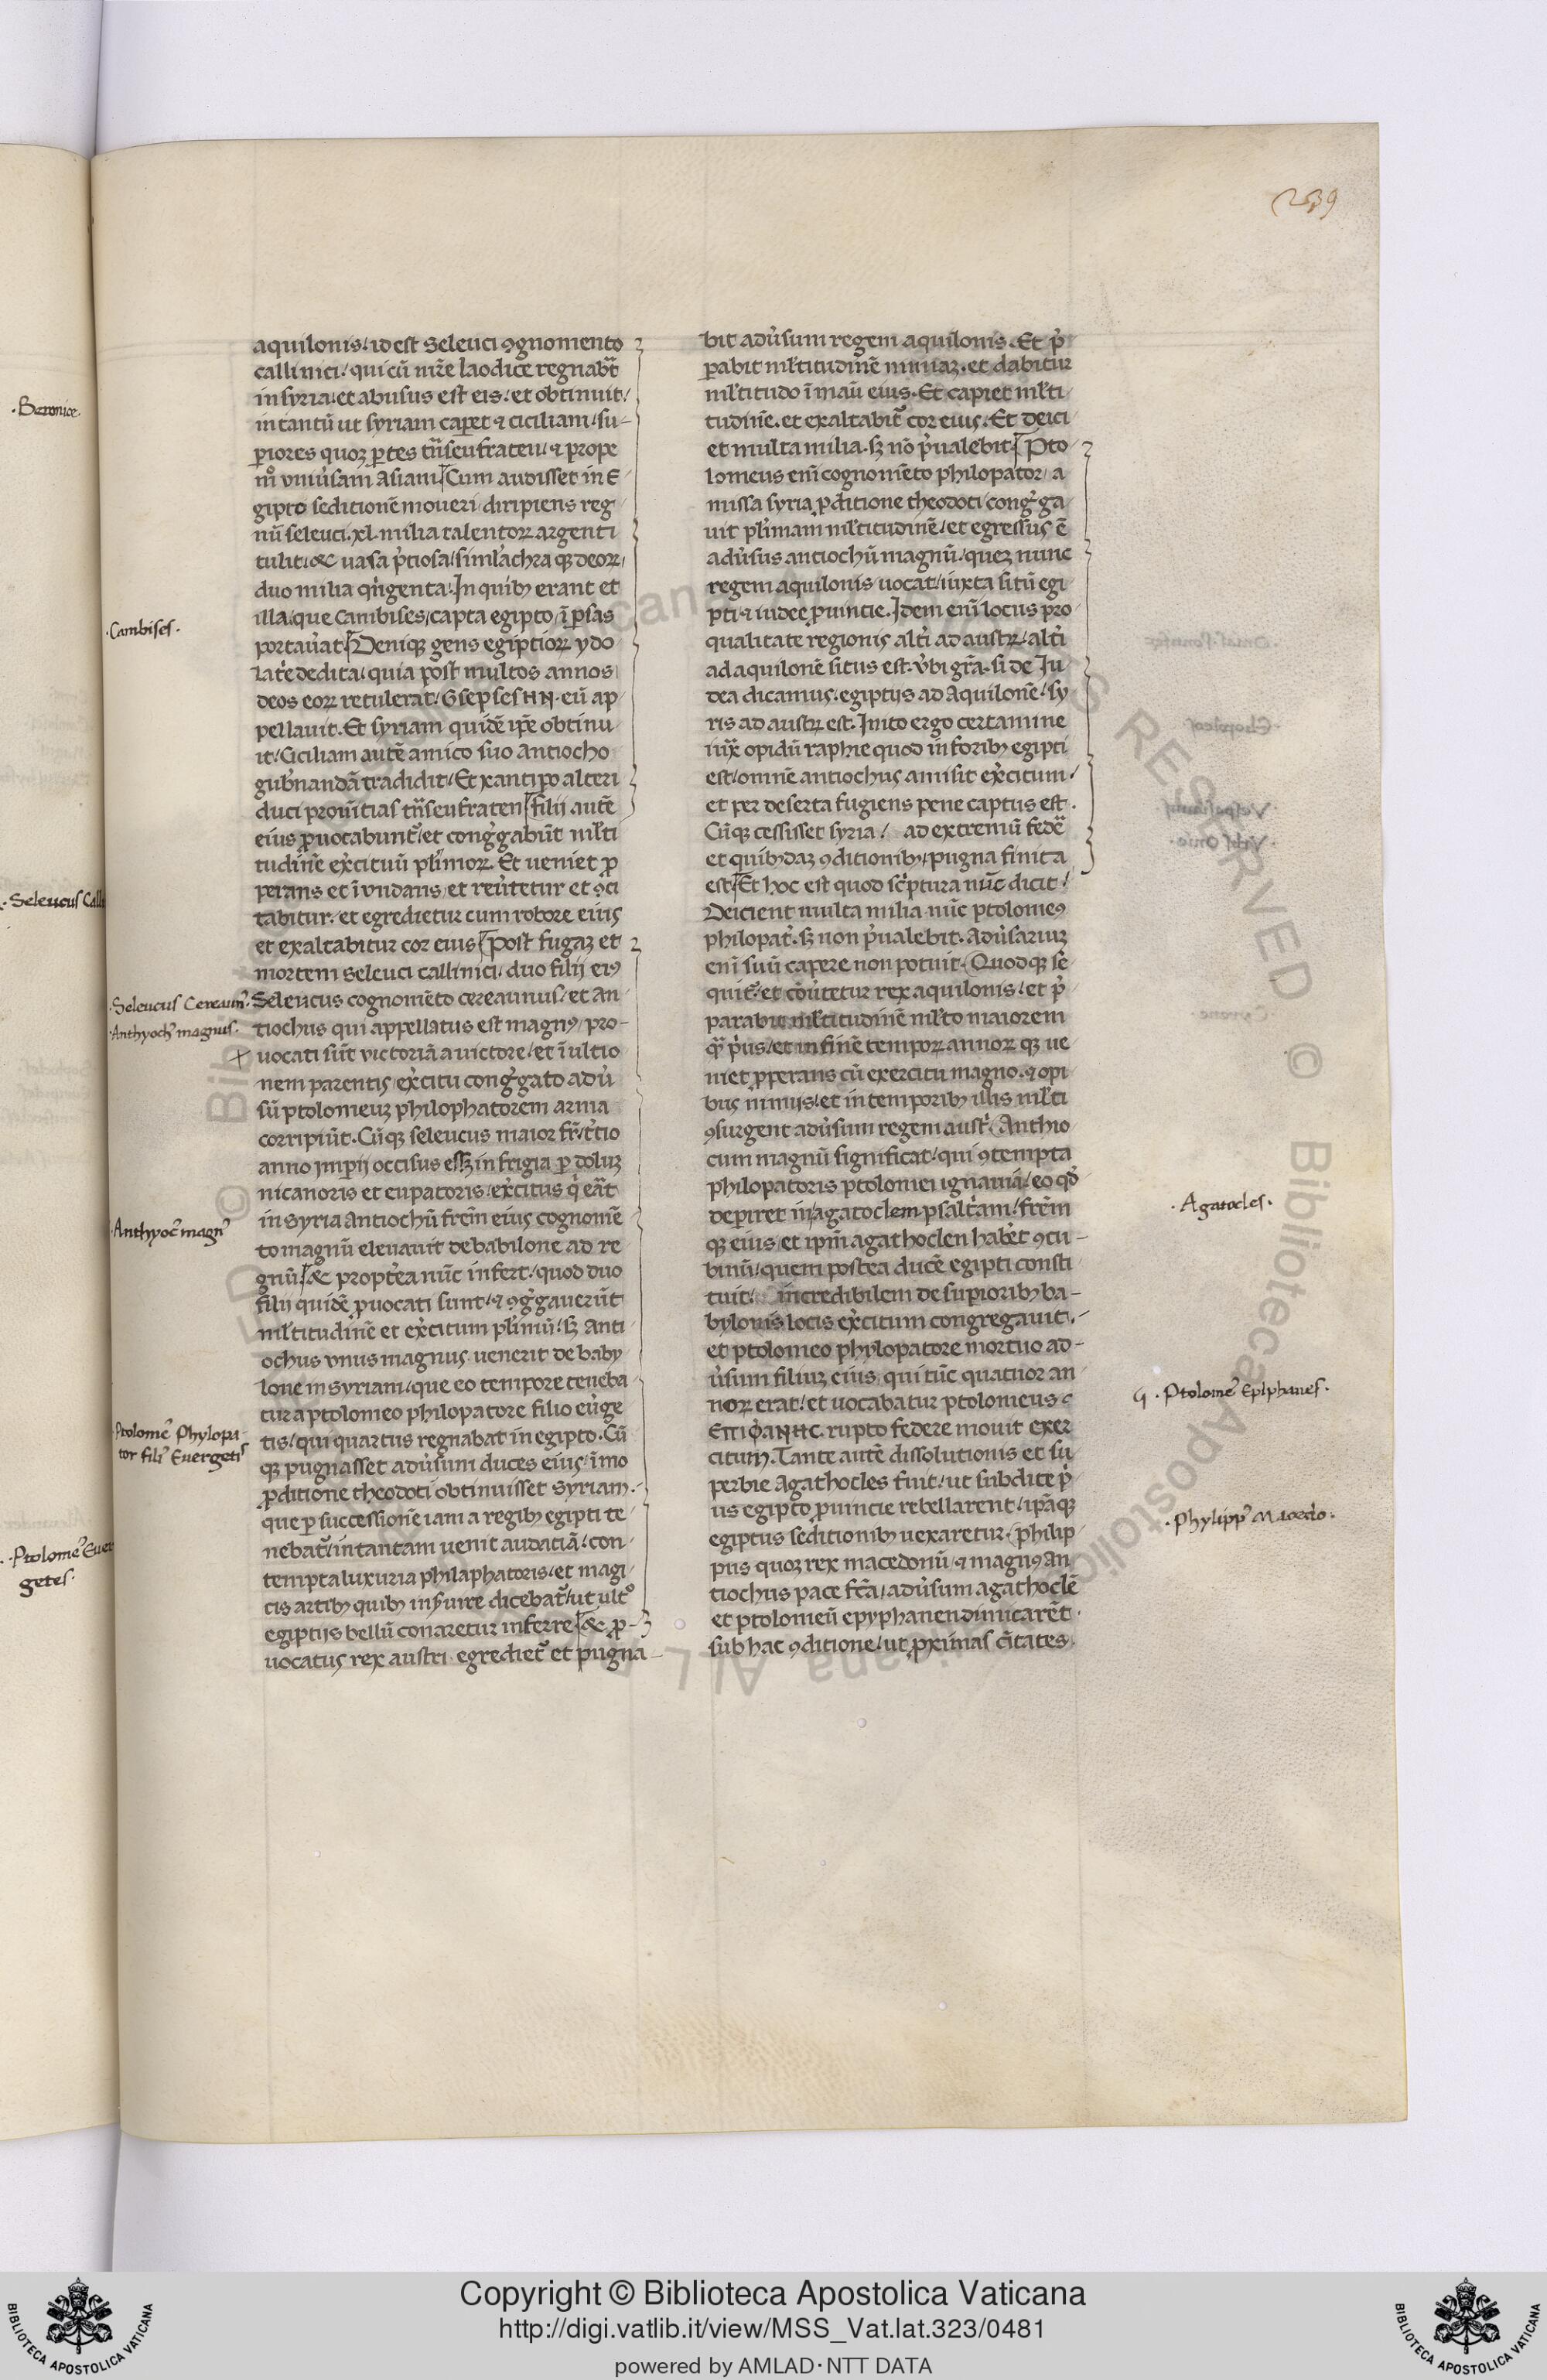 239
·Beronice·
·Seleucus Call
·Ptolome᷒ Euer
getes·
·Cambises·
·Seleucus Ceraun᷒·
·Anthyoch᷒ magnus·
·Anthyoc᷒ magn᷒
Ptolome᷒ Phylopa-
tor fili᷒ Euergetis
aquilonis/ idest seleuci ꝯgnomento
callinici/ qui cū mr̄e laodice regnab̄t
in syria/ et abusus est eis/ et obtinuit/
in tantū ut syriam cap̲et ⁊ ciciliam/ su-
p̲iores quoꝫ p̲tes tn̄s eufraten/ ⁊ prope
mͦ vniu̓sam asiam Cum audisset in e
gipto seditionē moueri/ diripiens reg
nū seleuci/ xl· milia talentoꝝ argenti
tulit/ & uasa p̓tiosa/ siml̓achra qꝫ deoꝝ/
duo milia qn̓genta/ In quibꝫ erant et
illa/ que Cambises/ capta egipto/ ī p̲sas
portau̓at Deniqꝫ gens egiptioꝝ ydo
latr̓e dedita/ quia post multos annos
deos eoꝝ retulerat/ eū ap
pellauit. Et syriam quidē ip̄e obtinu
it/ Ciciliam autē amico suo antiocho
gub̓nandā tradidit/ Et xantipo alteri
duci prouītias tn̄s eufraten filii autē
eius ꝓuocabunt᷒/ et cong̓gabūt ml̓ti
tudinē ex̓cituū pl̓imoꝝ. Et ueniet ꝓ
perans et īundans/ et reu̓tetur et ꝯci
tabitur/ et egredietur cum robore eius
et exaltabitur cor eius Post fugaꝫ et
mortem seleuci callinici/ duo filii ei᷒
Seleucus cognomēto cereaunus/ et an
tiochus qui appellatus est magn᷒/ pro-
uocati sūt victoriā a victore/ et ī ultio
nem parentis/ ex̓citu cong̓gato adu̓
sū ptolomeuꝫ philophatorem arma
corripiūt. Cūqꝫ seleucus maior fr̄/ t̓tio
anno imp̲ii occisus in frigia p̲ doluꝫ
nicanoris et eupatoris/ ex̓citus q̓ eāt
in syria antiochū fr̄em eius cognomē
to magnū eleuauit de babilone ad re
gnū & propt̓ea nūc infert/ quod duo
filii quidē ꝓuocati sunt/ ⁊ ꝯg̓gauerūt
ml̓titudinē et ex̓citum pl̓imū/ sꝫ anti
ochus vnus magnus uenerit de baby
lone in syriam/ que eo tempore teneba
tur a ptolomeo philopatore filio eu̓ge
tis/ qui quartus regnabat in egipto. Cū
qꝫ pugnasset adu̓sum duces eius/ īmo
ꝓditione theodoti obtinuisset syriam/
que p̲ successionē iam a regibꝫ egipti te
nebat᷒/ in tantam uenit audaciā/ con-
tempta luxuria philaphatoris/ et magi
cis artibꝫ quibꝫ ins̓uire dicebat᷒/ ut ultͦ
egiptiis bellū conaretur inferre & ꝓ-
uocatus rex austri egrediet᷒ et pugna-
bit adu̓sum regem aquilonis. Et p̓
p̲abit ml̓titudinē nimiaꝫ. et dabitur
ml̓titudo ī manū eius. Et capiet ml̓ti
tudinē. et exaltabit᷒ cor eius. Et deici
et multa milia. sꝫ nō p̓ualebit Pto-
lomeus enī cognomēto philopator/ a
missa syria ꝓditione theodoti/ cong̓ga
uit pl̓imam ml̓titudinē/ et egressus ē
adu̓sus antiochū magnū/ queꝫ nunc
regem aquilonis uocat/ iuxta sitū egi
pti/ ⁊ iudee ꝓuincie. Idem enī locus pro
qualitate regionis alt̓i ad austꝝ/ alt̓i
ad aquilonē situs est. v̓bi gr̄a. si de Iu
dea dicamus/ egiptiis ad aquilonē/ sy
ris ad austꝝ est. Inito ergo certamine
iux̄ opidū raphie quod in foribꝫ egipti
est/ omnē antiochus amisit ex̓citum/
et per deserta fugiens pene captus est.
Cūqꝫ cessisset syria/ ad extremū fedē
et quibꝫdaꝫ ꝯditionibꝫ/ pugna finita
est/ Et hoc est quod sc̓ptura nūc dicit/
Deicient multa milia nūc ptolome᷒
philopat̓. sꝫ non p̓ualebit. Adu̓sariuꝫ
enī suū capere non potuit. Quodqꝫ se
quit᷒/ et cōu̓tetur rex aquilonis/ et p̓
parabit ml̓titudinē ml̓to maiorem
q̄ p̓us/ et in finē tempoꝝ annoꝝ qꝫ ue
niet ꝓperans cū exercitu magno. ⁊ opi
bus nimiis/ et in temporibꝫ illis ml̓ti
ꝯsurgent adu̓sum regem aust̓/ Anthio
cum magnū significat/ qui ꝯtempta
philopatoris ptolomei ignauiā/ eo qd̓
dep̲iret in agatoclem psalt̓am/ fr̄em
qꝫ eius/ et ip̄m agathoclen hab̓et ꝯcu-
binū/ quem postea ducē egipti consti
tuit/ incredibilem de sup̲ioribꝫ ba-
bylonis locis ex̓citum congregauit/
et ptolomeo phylopatore mortuo ad-
u̓sum filiuꝫ eius/ qui tūc quatuor an
noꝝ erat/ et uocabatur ptolomeus ε
ΕΠΙΦΑΝΗC. rupto federe mouit exer
citum. Tante autē dissolutionis et su
perbie agathocles fuit/ ut subdite p̓
us egipto ꝓuincie rebellarent/ ip̄aqꝫ
egiptus seditionibꝫ uexaretur. philip
pus quoꝫ rex macedonū/ ⁊ magn᷒ an
tiochus pace fc̄a/ adu̓sum agathoclē
et ptolomeū epyphanen dimicarēt
sub hac ꝯditione/ ut ꝓximas cīitates
·Agatocles·
·Ptolome᷒ Epiphanes·
·Phylipp᷒ Macedo·
Copyright © Biblioteca Apostolica Vaticana
http://digi.vatlib.it/view/MSS_Vat.lat.323/0481
powered by AMLAD·NTT DATA
BIBLIOTECA APOSTOLICA VATICANA
BIBLIOTECA APOSTOLICA VATICANA